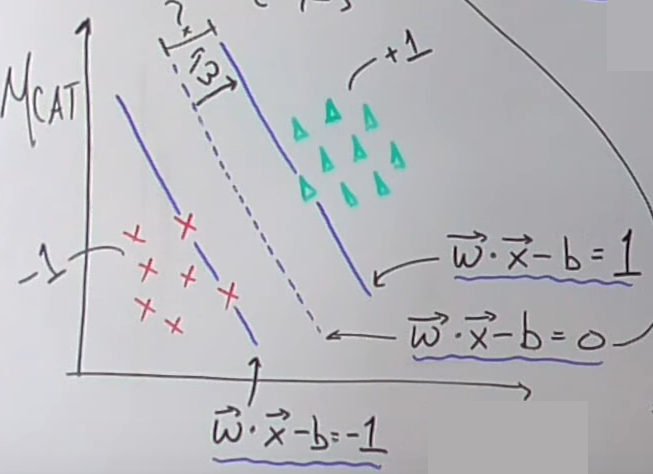 +1
MCAT
?
w⃗
-1
w⃗·x⃗-b=1
w⃗·x⃗-b=0
w⃗·x⃗-b=-1